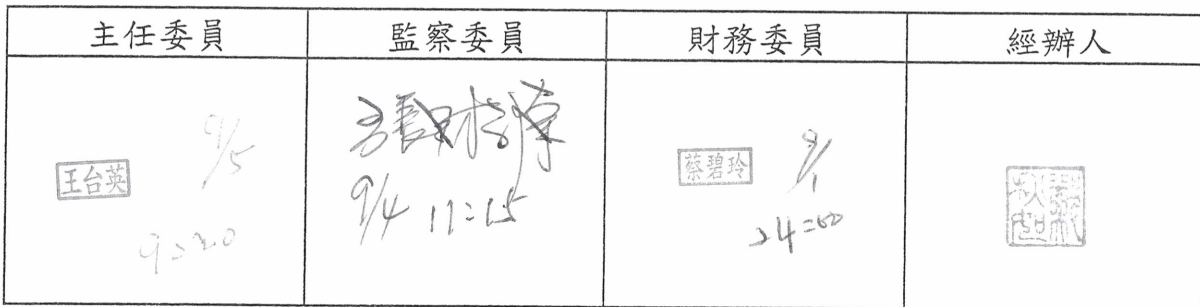 主任委員 監察委員 財務委員 經辦人
王台英
9/5
9:20
9/4 11:15
蔡碧玲
9/1
24:00